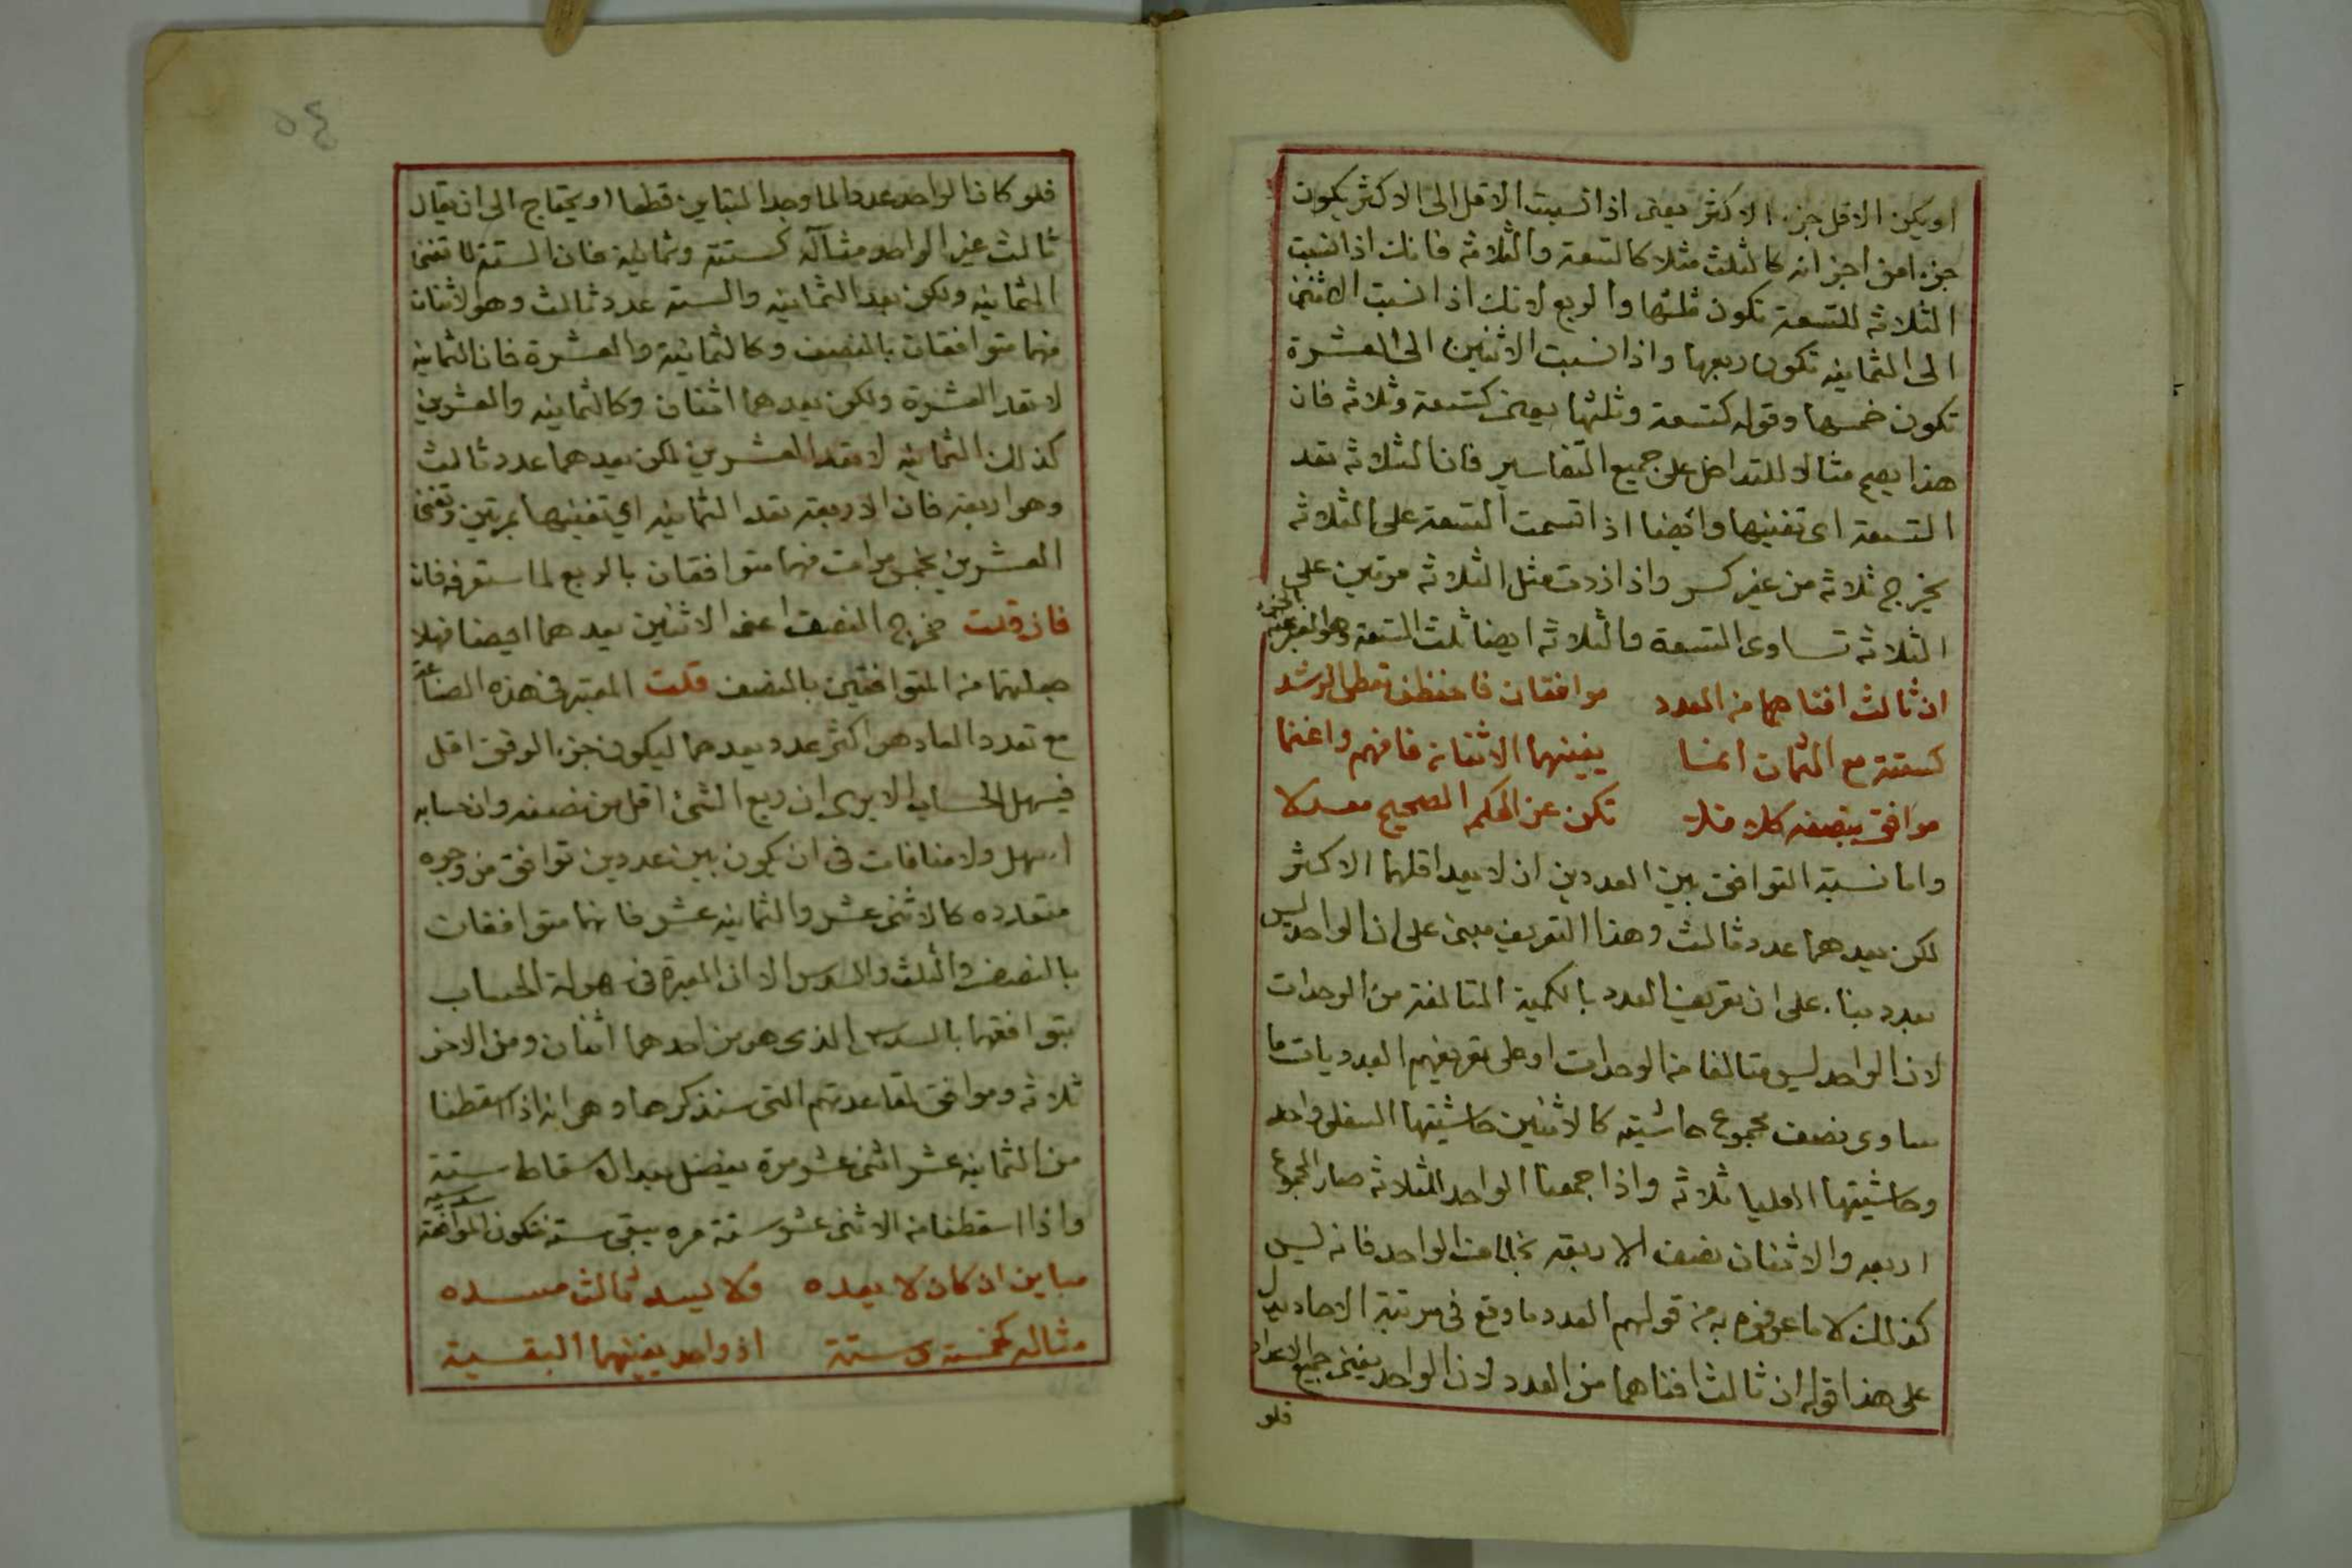 او يكون الاقل جزء الاكثر يعنى اذا نسبت الاقل الى الاكثر يكون
جزء من اجزائه كالثلث مثلا كالتسعة والثلاثه فانك اذا نسبت
الثلاثه للتسعة تكون ثلثها والربع لانك اذا نسبت الاثنين
الى الثمانيه تكون ربعها واذا نسبت الاثنين الى العشرة
تكون خمسها وقوله كتسعة وثلثها يعنى كتسعة وثلاثه فان
هذا يصح مثالا للتداخل على جميع التفاسير فان الثلاثه تعد
التسعة اى تفنيها وايضا اذا قسمت التسعة على الثلاثه
يخرج ثلاثه من غير كسر واذا زدت مثل الثلاثه مرتين على
الثلاثه تساوى التسعة والثلاثه ايضا ثلث التسعة وهو المعبر عنه
ان ثالث افناهما من العدد موافقان فاحفظن تعطى الرشد
كستة مع الثمان انما يفنيهما الاثنان فافهم واغنما
موافق بنصفه كلا تكن عن الحكم الصحيح معدلا
واما نسبة التوافق بين العددين ان لا يعد اقلهما الاكثر
لكن يعدهما عدد ثالث وهذا التعريف مبنى على ان الواحد ليس
بعدد بناء على ان تعريف العدد بالكمية المتالفة من الوحدات
لان الواحد ليس متالفا من الوحدات او على تعريفهم العدد بانه ما
ساوى نصف مجموع حاشيته كالاثنين حاشيتها السفلى واحد
وحاشيتها العليا ثلاثه واذا جمعنا الواحد للثلاثه صار المجموع
اربعه والاثنان نصف الاربعه بخلاف الواحد فانه ليس
كذلك لا ما عرفوه به من قولهم العدد ما وقع فى مرتبة الاحاد يدل
على هذا قوله ان ثالث افناهما من العدد لان الواحد يفنى جميع الاعداد
فلو
٥٤
فلو كان الواحد عددا لما وجد المتباين قطعا او يحتاج الى ان يقال
ثالث غير الواحد مثاله كستة وثمانيه فان الستة لا تفنى
الثمانيه ولكن يعد الثمانيه والسته عدد ثالث وهو الاثنان
فهما متوافقان بالنصف وكالثمانية والعشرة فان الثمانيه
لا تعد العشرة ولكن يعدهما اثنان وكالثمانيه والعشرين
كذلك الثمانيه لا تعد العشرين لكن يعدهما عدد ثالث
وهو اربعه فان الاربعة تعد الثمانيه اي تفنيها بمرتين وتفنى
العشرين بخمس مرات فهما متوافقان بالربع لما ستعرفه فان
فان قلت مخرج النصف اعنى الاثنين يعدهما ايضا فهلا
جعلتهما من المتوافقين بالنصف قلت المعتبر فى هذه الصناعة
مع تعدد العاد هو اكثر عدد يعدهما ليكون جزء الوفق اقل
فيسهل الحساب الا يرى ان ربع الشئ اقل من نصفه وان حسابه
اسهل ولا منافات فى ان يكون بين عددين توافق من وجوه
متعدده كالاثنى عشر والثمانيه عشر فانهما متوافقان
بالنصف والثلث والسدس الا ان العبرة فى سهولة الحساب
بتوافقهما بالسدس الذى هو من احدهما اثنان ومن الاخر
ثلاثه وموافق لقاعدتهم التى سنذكرها وهى انه اذا اسقطنا
من الثمانيه عشر اثنى عشر مرة يفضل بعد الاسقاط ستة
واذا اسقطنا من الاثنى عشر ستة مره يبقى ستة فتكون الموافقة سدسيه
مباين ان كان لا يعده ولا يسد ثالث مسده
مثاله كخمسة وستة اذ واحد يفنيهما البقية